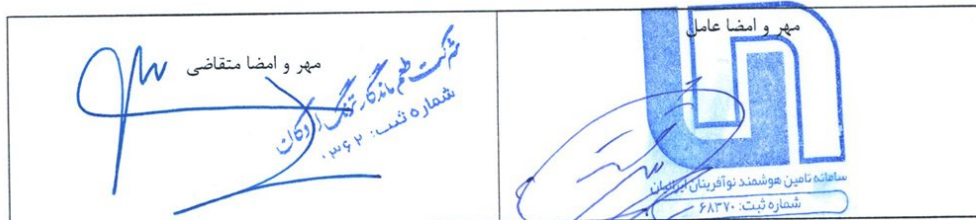 مهر و امضا عامل
سامانه تامین هوشمند نوآفرینان ایرانیان
شماره ثبت: ۶۸۳۷۰
مهر و امضا متقاضی
شرکت طعم ماندگار
شماره ثبت: ۳۶۲